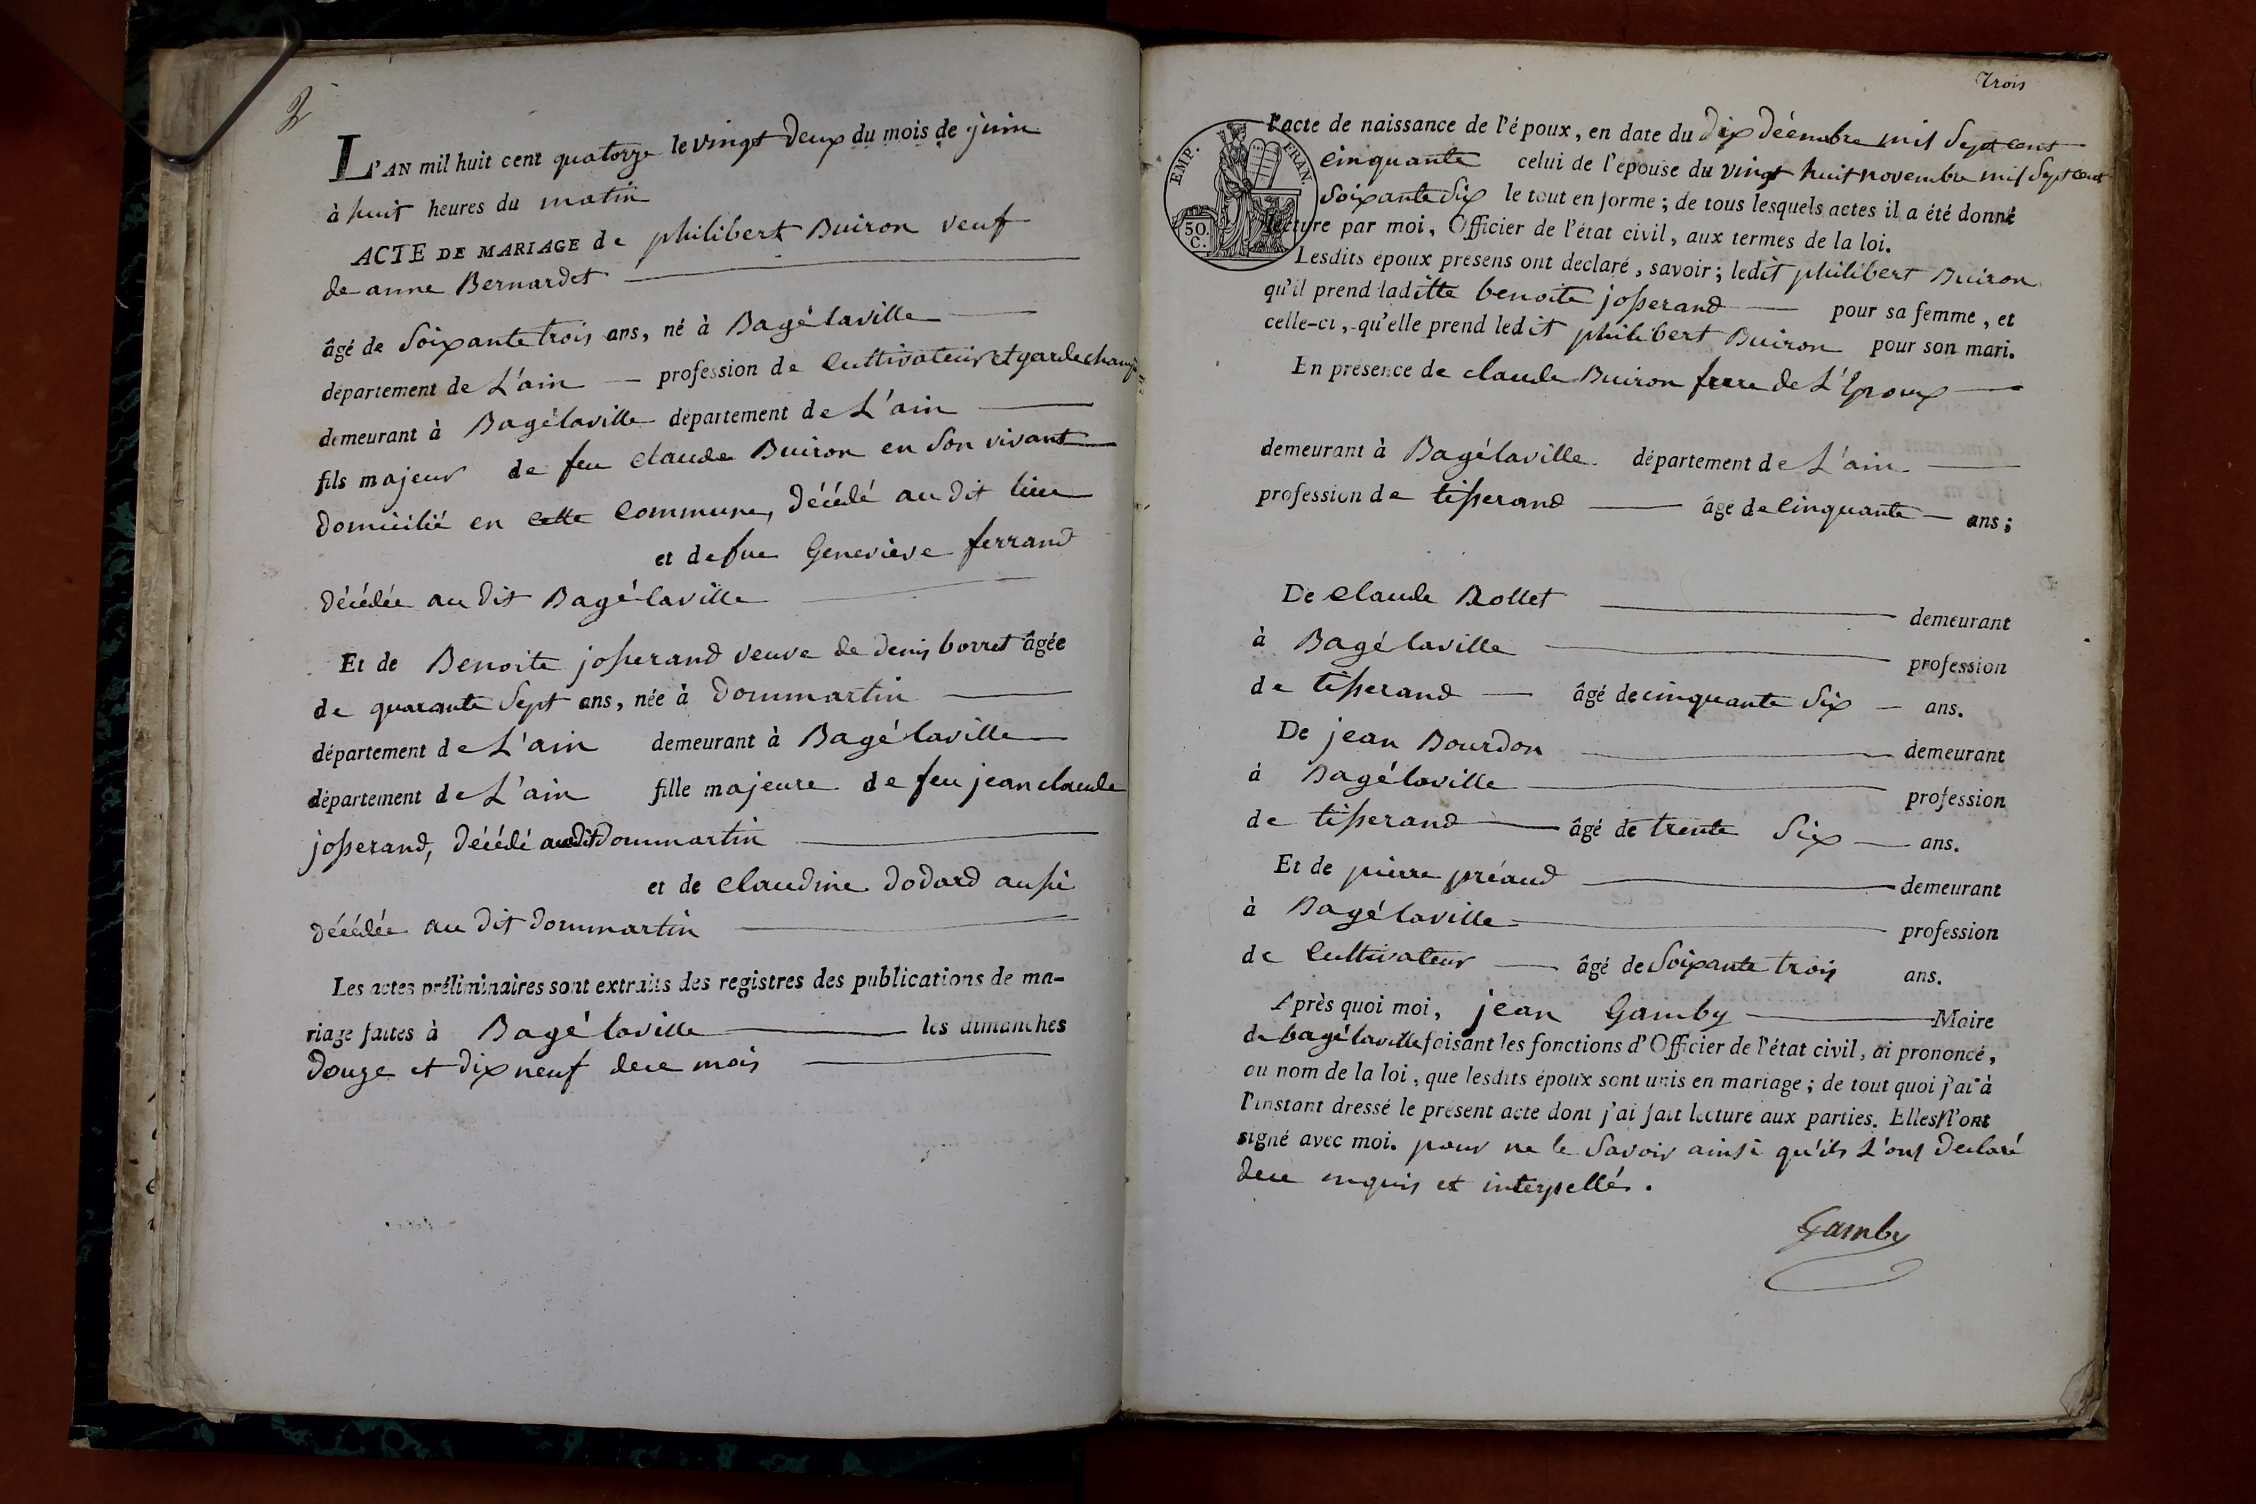 2
L'AN mil huit cent quatorze le vingt deux du mois de juin
à huit heures du matin
ACTE DE MARIAGE de philibert Buiron veuf
de anne Bernardet
âgé de Soixante trois ans, né à Bagélaville
département de L'ain profession de Cultivateur et garde champ
demeurant à Bagélaville département de L'ain
fils majeur de feu Claude Buiron en son vivant
domicilié en cette Commune, décédé au dit lieu
et de fue Geneviève ferrand
décédée au dit Bagélaville
Et de Benoite josserand veuve de denis borret âgée
de quarante Sept ans, née à dommartin
département de L'ain demeurant à Bagélaville
département de L'ain fille majeure de feu jean claude
josserand, décédé audit dommartin
et de Claudine dodard aussi
décédée au dit dommartin
Les actes préliminaires sont extraits des registres des publications de ma-
riage faites à Bagélaville les dimanches
douze et dix neuf de ce mois
Trois
EMP. FRAN.
50.
C.
l'acte de naissance de l'époux, en date du dix décembre mil Sept cent
cinquante celui de l'épouse du vingt huit novembre mil Sept cent
Soixante Six le tout en forme ; de tous lesquels actes il a été donné
lecture par moi, Officier de l'état civil, aux termes de la loi.
Lesdits époux présens ont déclaré, savoir ; ledit philibert Buiron
qu'il prend laditte benoite josserand pour sa femme, et
celle-ci, qu'elle prend ledit philibert Buiron pour son mari.
En présence de claude Buiron frere de L'Epoux
demeurant à Bagélaville département de L'ain
profession de tisserand âgé de Cinquante ans ;
De Claude Rollet demeurant
à Bagélaville profession
de tisserand âgé de cinquante Six ans.
De jean Bourdon demeurant
à Bagélaville profession
de tisserand âgé de trente Six ans.
Et de pierre préaud demeurant
à Bagélaville profession
de Cultivateur âgé de Soixante trois ans.
Après quoi moi, jean Gamby Maire
de bagélaville faisant les fonctions d'Officier de l'état civil, ai prononcé,
au nom de la loi, que lesdits époux sont unis en mariage ; de tout quoi j'ai à
l'instant dressé le présent acte dont j'ai fait lecture aux parties. Elles N'ont
signé avec moi. pour ne le Savoir ainsi qu'ils L'ont déclaré
de ce enquis et interpellés.
Gamby